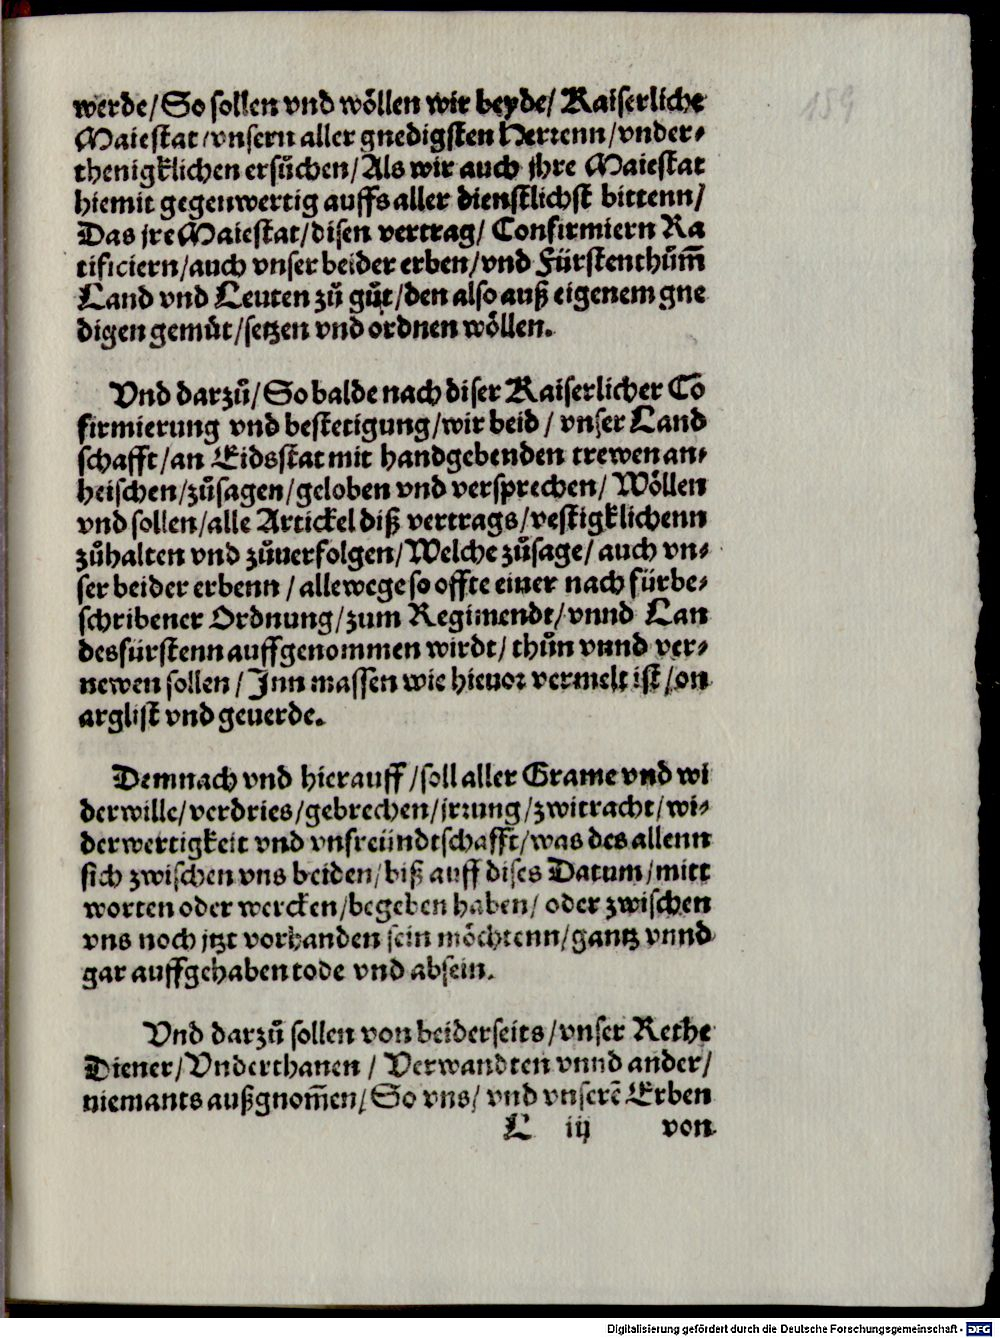 159
werde/So sollen vnd wöllen wir beyde/ Kaiserliche
Maiestat/vnsern aller gnedigsten Herrenn/vnder-
thenigklichen ersůchen/Als wir auch jhre Maiestat
hiemit gegenwertig auffs aller dienstlichst bittenn/
Das jre Maiestat/disen vertrag/ Confirmiern Ra
tificiern/auch vnser beider erben/vnd Fürstenthům̃
Land vnd Leuten zů gůt/den also auß eigenem gne
digen gemůt/setzen vnd ordnen wöllen.
Vnd darzů/So balde nach diser Kaiserlicher Cõ
firmierung vnd bestetigung/wir beid/ vnser Land
schafft/an Eidsstat mit handgebenden trewen an-
heischen/zůsagen/geloben vnd versprechen/ Wöllen
vnd sollen/alle Artickel diß vertrags/vestigklichenn
zůhalten vnd zůuerfolgen/Welche zůsage/ auch vn-
ser beider erbenn/allewege so offte einer nach fürbe-
schribener Ordnung/zum Regimendt/vnnd Lan
desfürstenn auffgenommen wirdt/ thůn vnnd ver-
newen sollen/Inn massen wie hieuor vermelt ist/on
arglist vnd geuerde.
Demnach vnd hierauff/soll aller Grame vnd wi
derwille/verdries/gebrechen/jrrung/zwitracht/wi-
derwertigkeit vnd vnfreündtschafft/was des allenn
sich zwischen vns beiden/biß auff dises Datum/mitt
worten oder wercken/begeben haben/ oder zwischen
vns noch jtzt vorhanden sein möchtenn/gantz vnnd
gar auffgehaben tode vnd absein.
Vnd darzů sollen von beiderseits/vnser Rethe
Diener/Vnderthanen/ Verwandten vnnd ander/
niemants außgnom̃en/So vns/ vnd vnserẽ Erben
L iij von
Digitalisierung gefördert durch die Deutsche Forschungsgemeinschaft - DFG